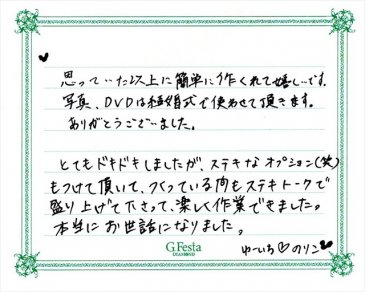 思っていた以上に簡単に作くれて嬉しいです。
写真、DVDは結婚式で使わせて頂きます。
ありがとうございました。
とてもドキドキしましたが、ステキなオプション(笑)
もつけて頂いて、つくっている間もステキトークで
盛り上げて下さって、楽しく作業できました。
本当にお世話になりました。
G.Festa
DIAMOND
ゆーいち♡のりこ♥